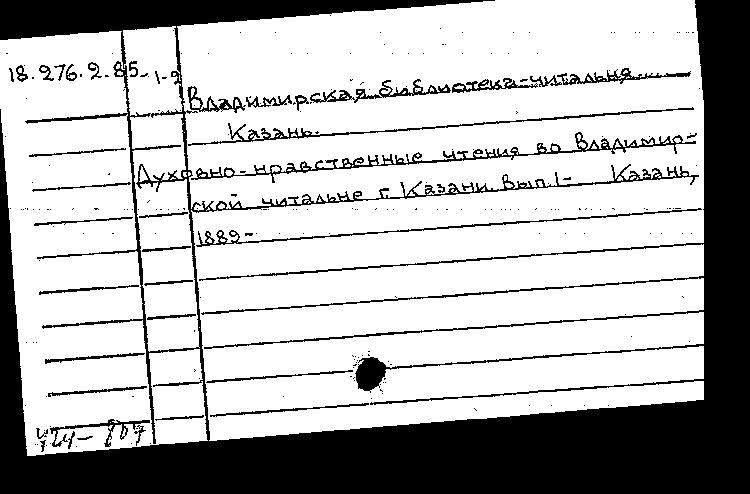 18.276.2.85-1-2
Владимирская библиотека-читальня
Казань.
Духовно-нравственные чтения во Владимир-
ской читальне г. Казани. Вып. 1- Казань,
1889-
424-807